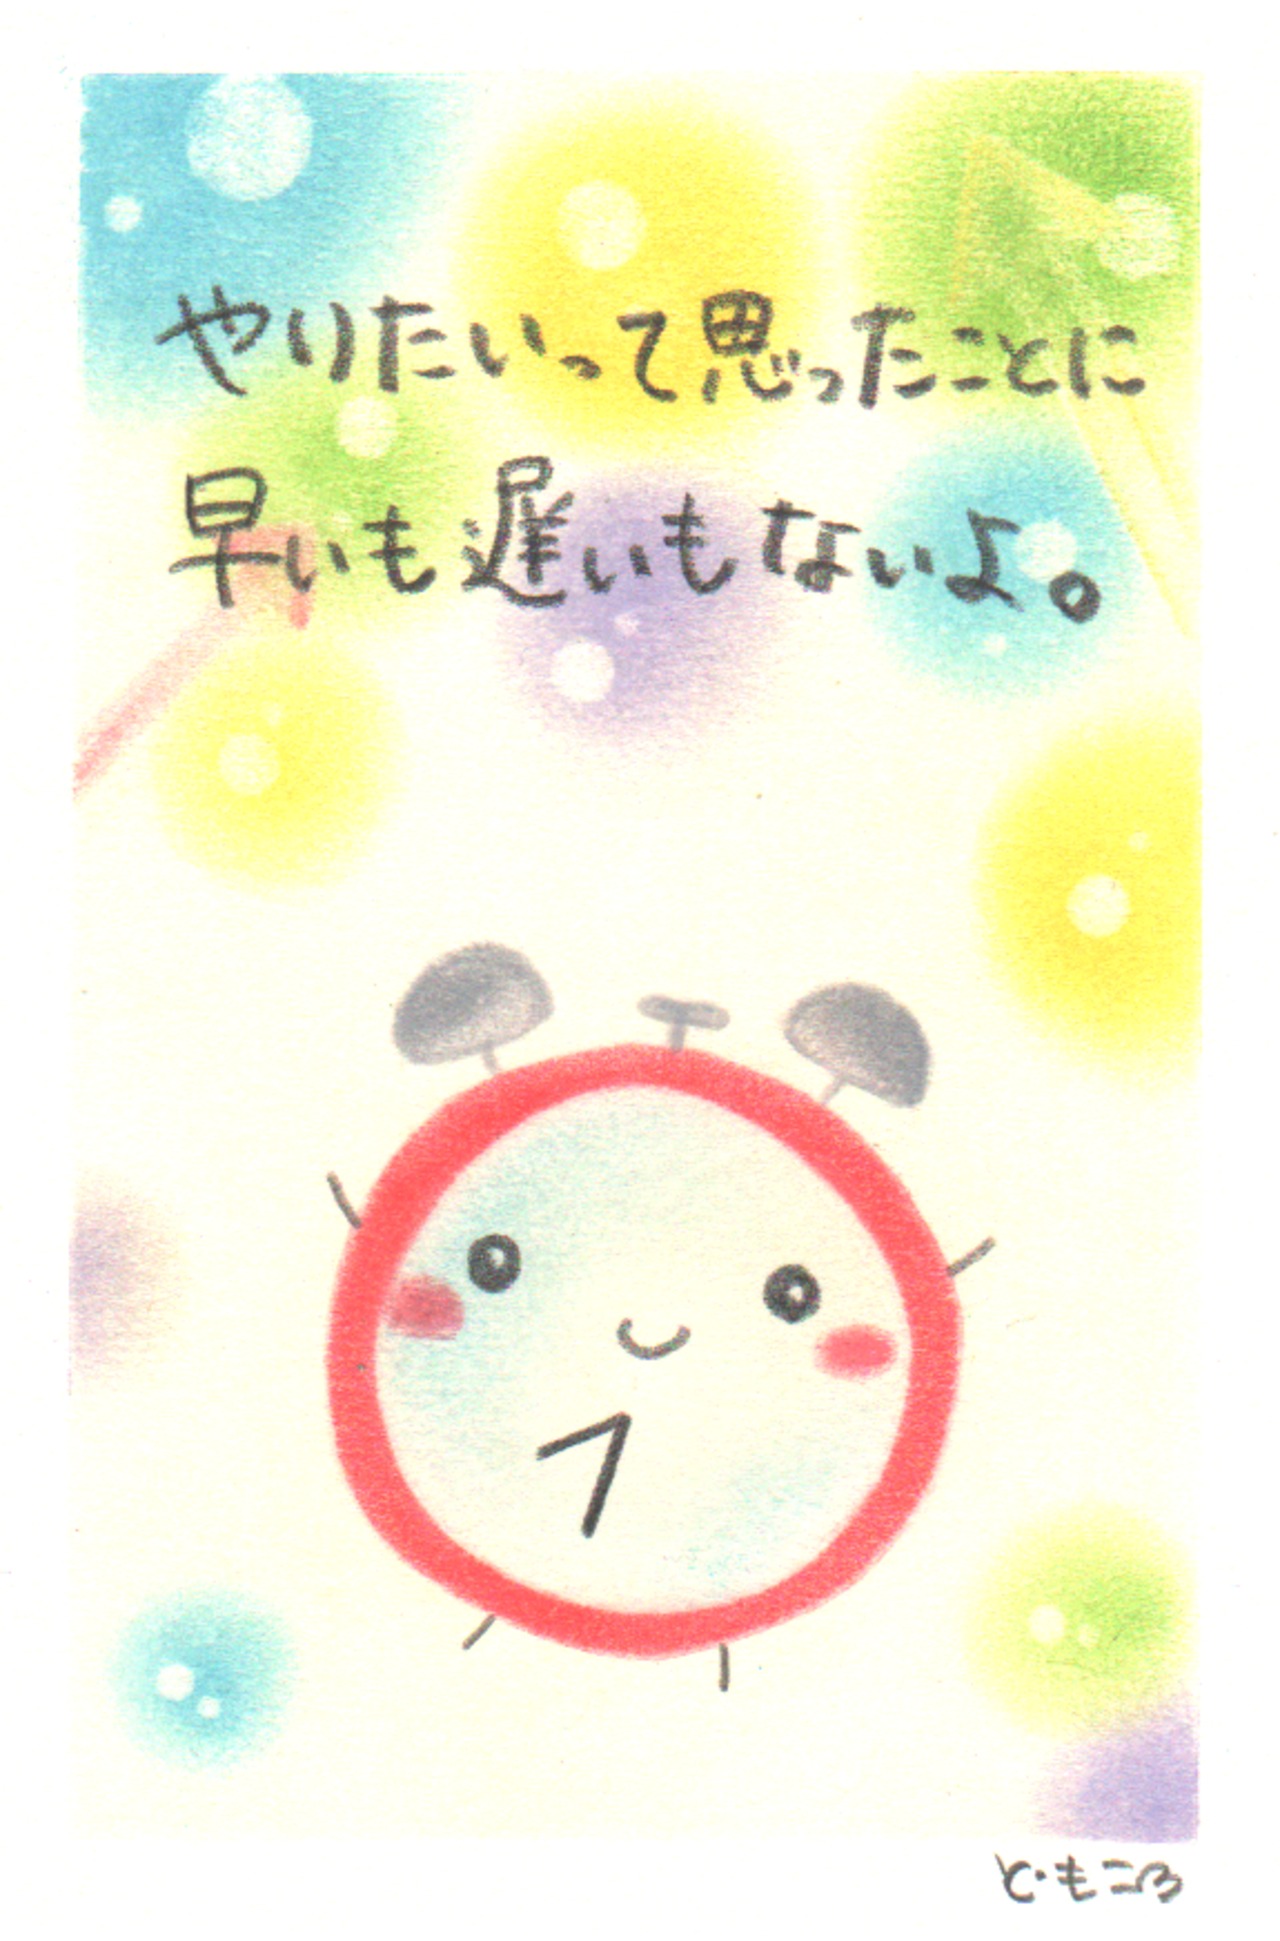 やりたいって思ったことに
早いも遅いもないよ。
と・もころ